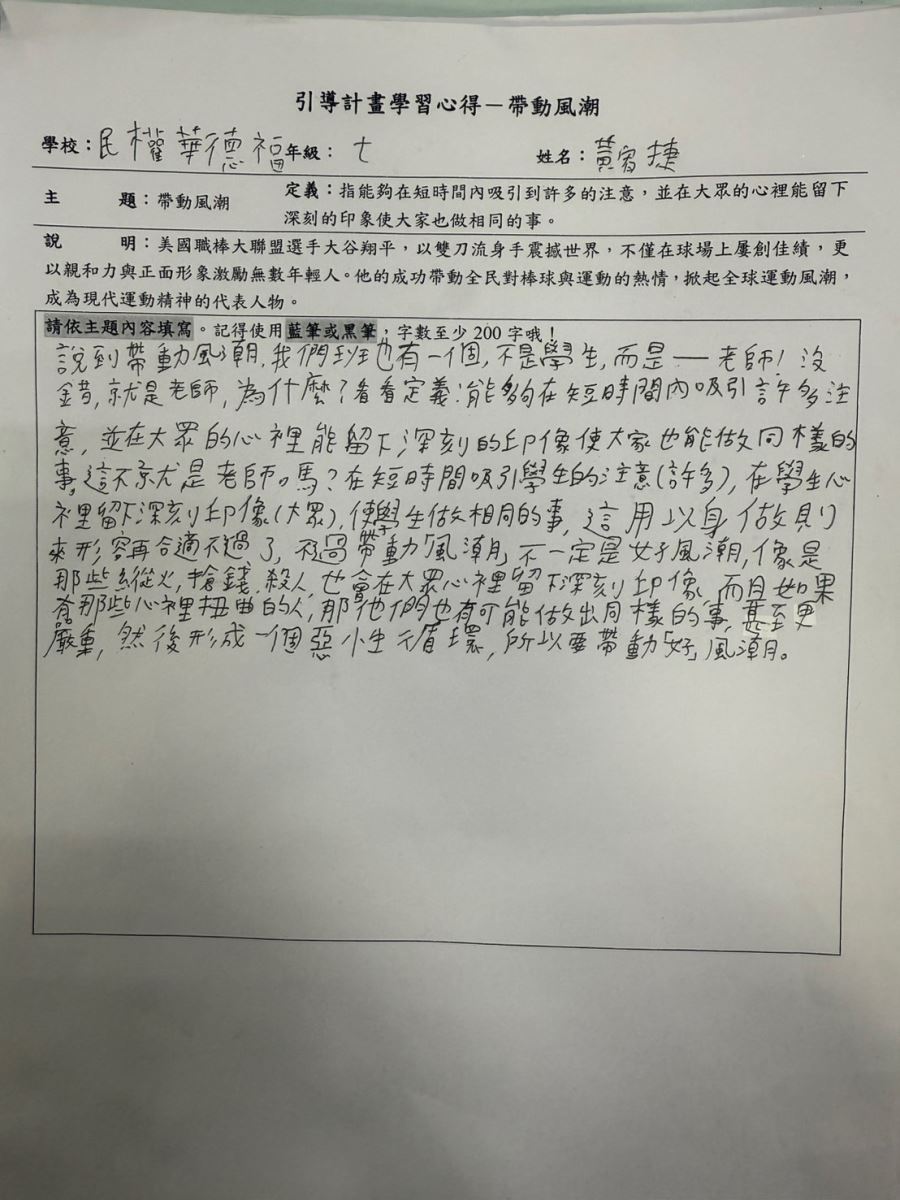 引導計畫學習心得－帶動風潮
學校：民權華德福年級：七 姓名：黃宥捷
主 題：帶動風潮 定義：指能夠在短時間內吸引到許多的注意，並在大眾的心裡能留下
深刻的印象使大家也做相同的事。
說 明：美國職棒大聯盟選手大谷翔平，以雙刀流身手震撼世界，不僅在球場上屢創佳績，更
以親和力與正面形象激勵無數年輕人。他的成功帶動全民對棒球與運動的熱情，掀起全球運動風潮，
成為現代運動精神的代表人物。
請依主題內容填寫。記得使用藍筆或黑筆，字數至少 200 字哦！
說到帶動風潮，我們班也有一個，不是學生，而是——老師！沒
錯，就是老師，為什麼？看看定義：能夠在短時間內吸引許多注
意，並在大眾的心裡能留下深刻的印像使大家也能做同樣的
事，這不就是老師嗎？在短時間吸引學生的注意(許多)，在學生心
裡留下深刻印像(大眾)，使學生做相同的事，這用以身做則
來形容再合適不過了，不過帶動「風潮」不一定是好風潮，像是
那些縱火，搶錢，殺人，也會在大眾心裡留下深刻印像，而且如果
有那些心裡扭曲的人，那他們也有可能做出同樣的事，甚至更
嚴重，然後形成一個惡性循環，所以要帶動「好」風潮。